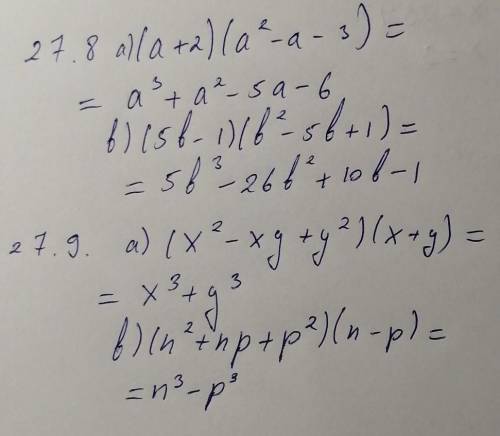 27.8 а)(a+2)(a²-a-3)=
= a³+a²-5a-6
в)(5b-1)(b²-5b+1)=
= 5b³-26b²+10b-1
27.9. а) (x²-xy+y²)(x+y)=
= x³+y³
в)(n²+np+p²)(n-p)=
=n³-p³